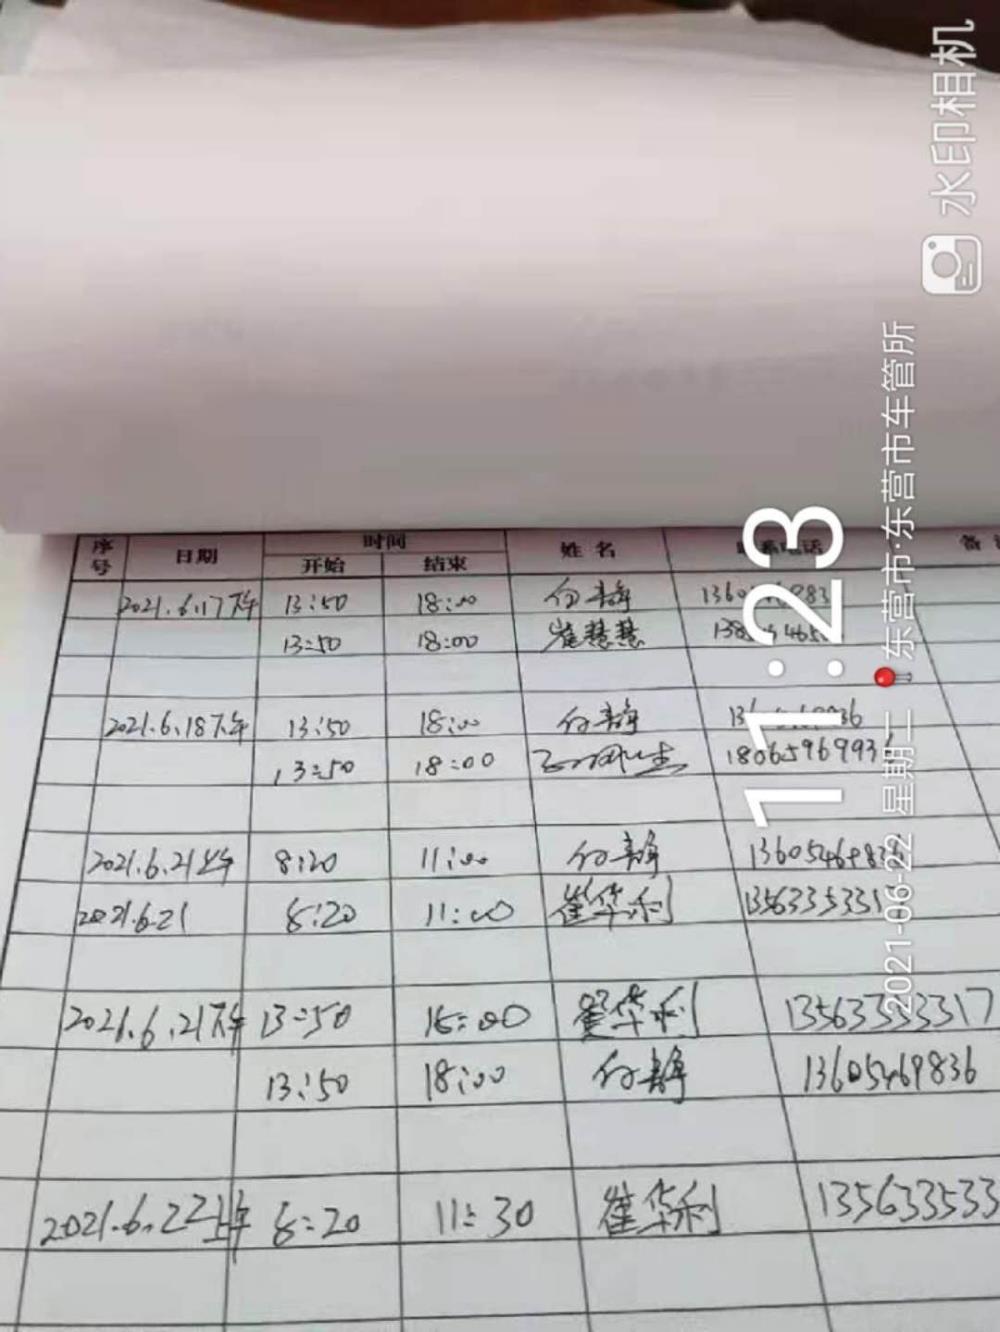 水印相机
11:23
2021-06-22 星期二 东营市·东营市车管所
序号 日期 时间 姓名 联系电话 备
开始 结束
2021.6.17下午 13:50 18:00 付静
13:50 18:00 崔慧慧
2021.6.18下午 13:50 18:00 付静
13:50 18:00 1806596993
2021.6.21上午 8:20 11:00 付静
2021.6.21 8:20 11:00 崔华利 1356335331
2021.6.21下午 13:50 18:00 崔华利 13563353317
13:50 18:00 付静 13605469836
2021.6.22上午 8:20 11:30 崔华利 135633533